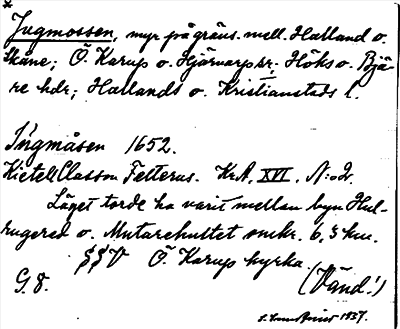 Jugmossen, myr på gräns. mell. Halland o.
Skåne; Ö. Karup o. Hjärnarp sr; Höks o. Bjä-
re hdr; Hallands o. Kristianstads l.
Ingmåsen 1652.
Kietell Classon Felterus. Kr. A. XVI. N:o 2.
Läget torde ha varit mellan byn Hul-
rugered o. Mutarehultet omkr. 6,3 km.
SSV Ö. Karup kyrka.
(Vänd!)
G. 8.
1937.